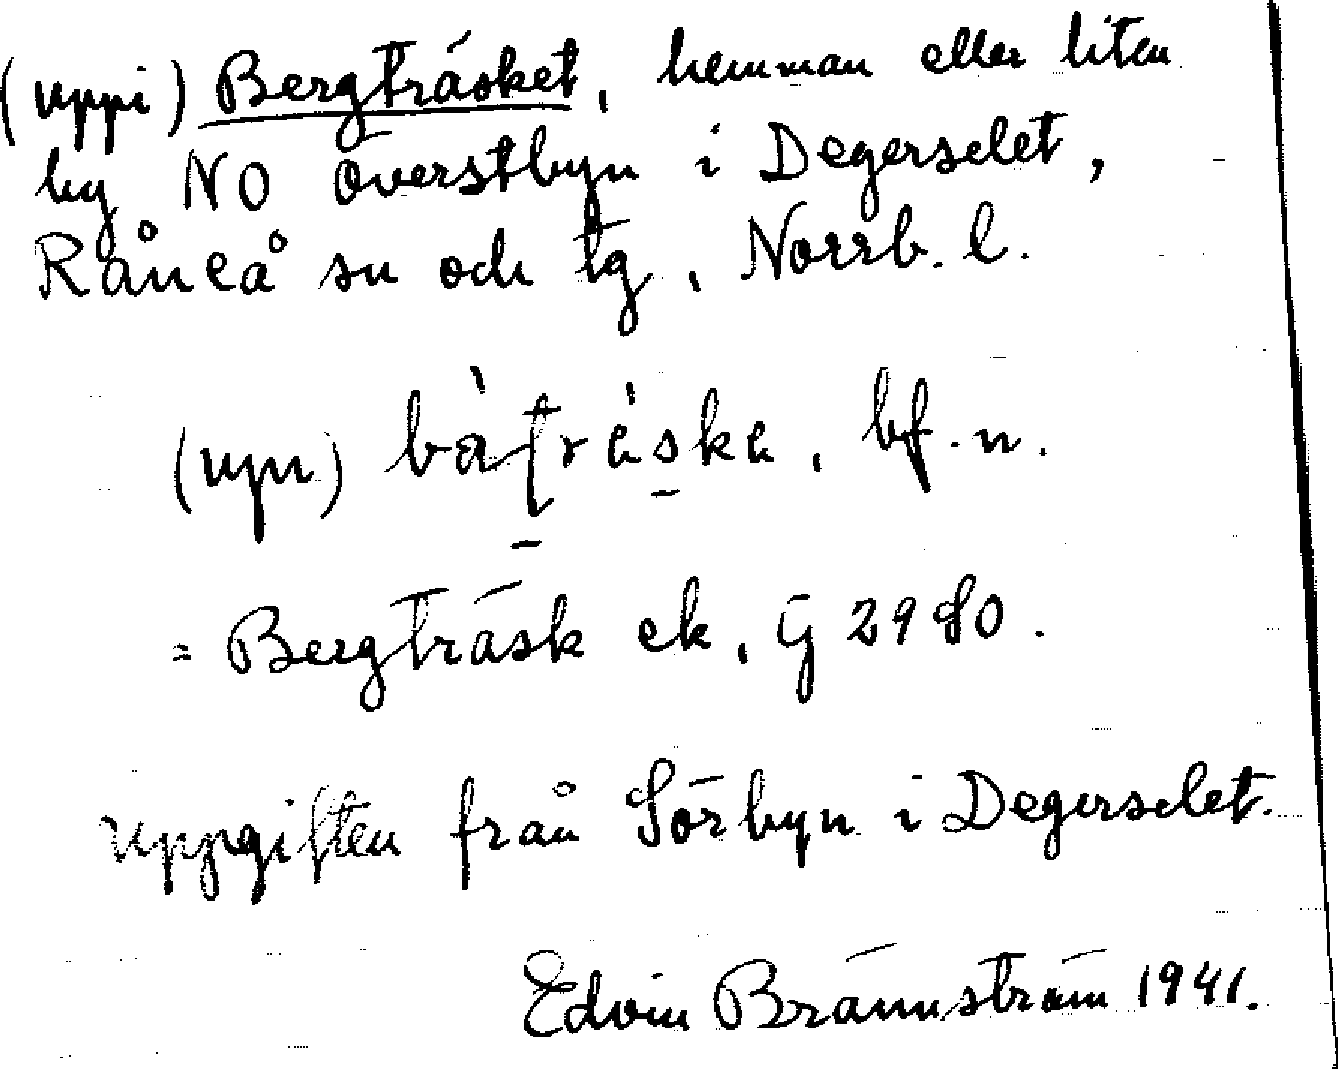 (uppi) Bergträsket, hemman eller liten
by NO Överstbyn i Degerselet,
Råneå sn och tg, Norrb. l.
(upn) bf. n.
= Bergträsk ek, G 2980.
uppgiften från Sörbyn i Degerselet.
Edvin Brännström 1941.